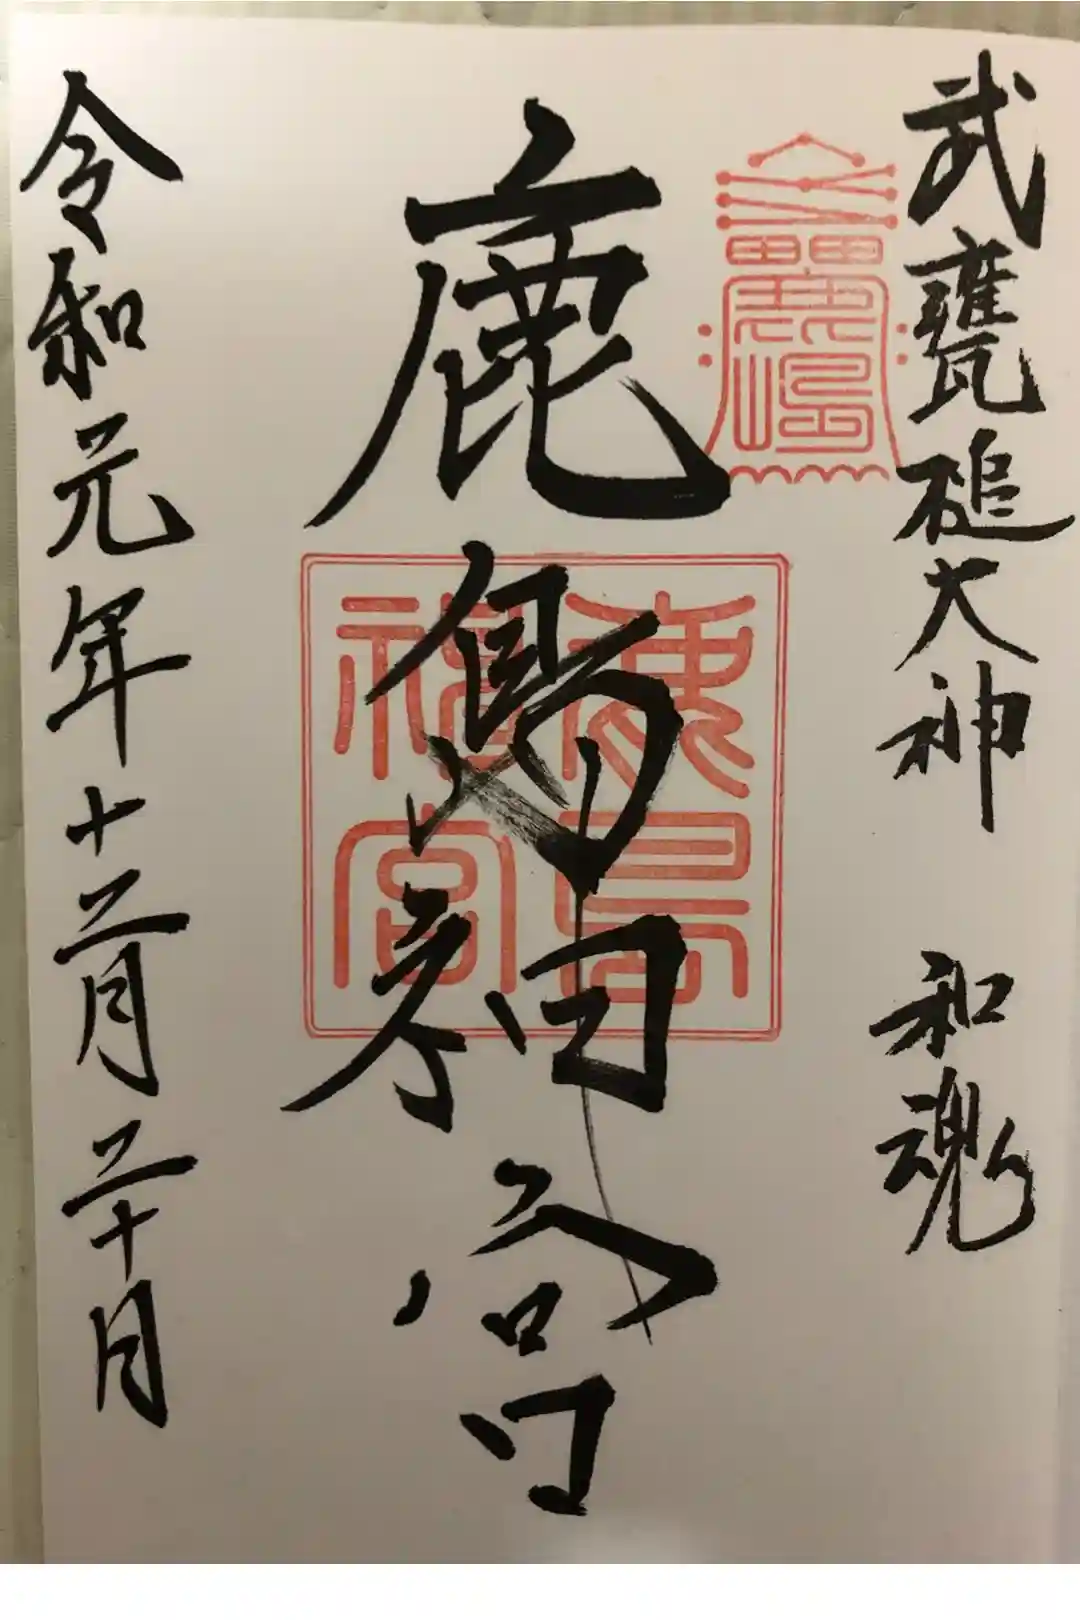 武甕槌大神 和魂
鹿島神宮
鹿島神宮
令和元年十二月二十日